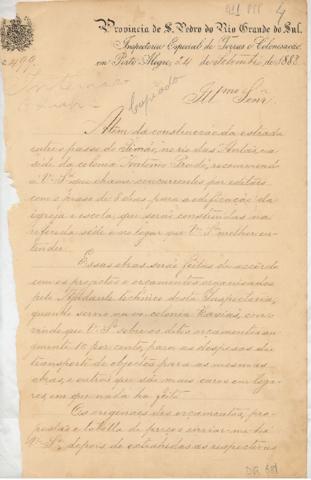 Provincia de S. Pedro do Rio Grande do Sul.
Inspectoria Especial de Terras e Colonisação
em Porto Alegre, 24 de setembro de 1888
Copiado
Ill.mo Senr.
Além da construcção da estrada
entre o passo do Simão, no rio das Antas, e a
séde da colonia Antonio Prado, recommendo
a V.ª S.ª que chame concurrentes por editaes
com o praso de 8 dias para a edificação da
igreja e escola, que serão construidas na
referida séde e no logar que V.ª S.ª melhor en-
tender.
Essas obras serão feitas de accordo
com os projectos e orçamentos organisados
pelo Ajudante technico desta Inspectoria,
quando servio na ex-colonia Caxias, con-
vindo que V.ª S.ª sobre os ditos orçamentos au-
gmente 10 por cento, para as despesas de
transporte de objectos para as mesmas
obras, e outros que são mais caros em loga-
res, em que nada ha feito.
Os originaes dos orçamentos, pro-
postas e tabella de preços enviar-me-há
V.ª S.ª, depois de extrahidas as respectivas